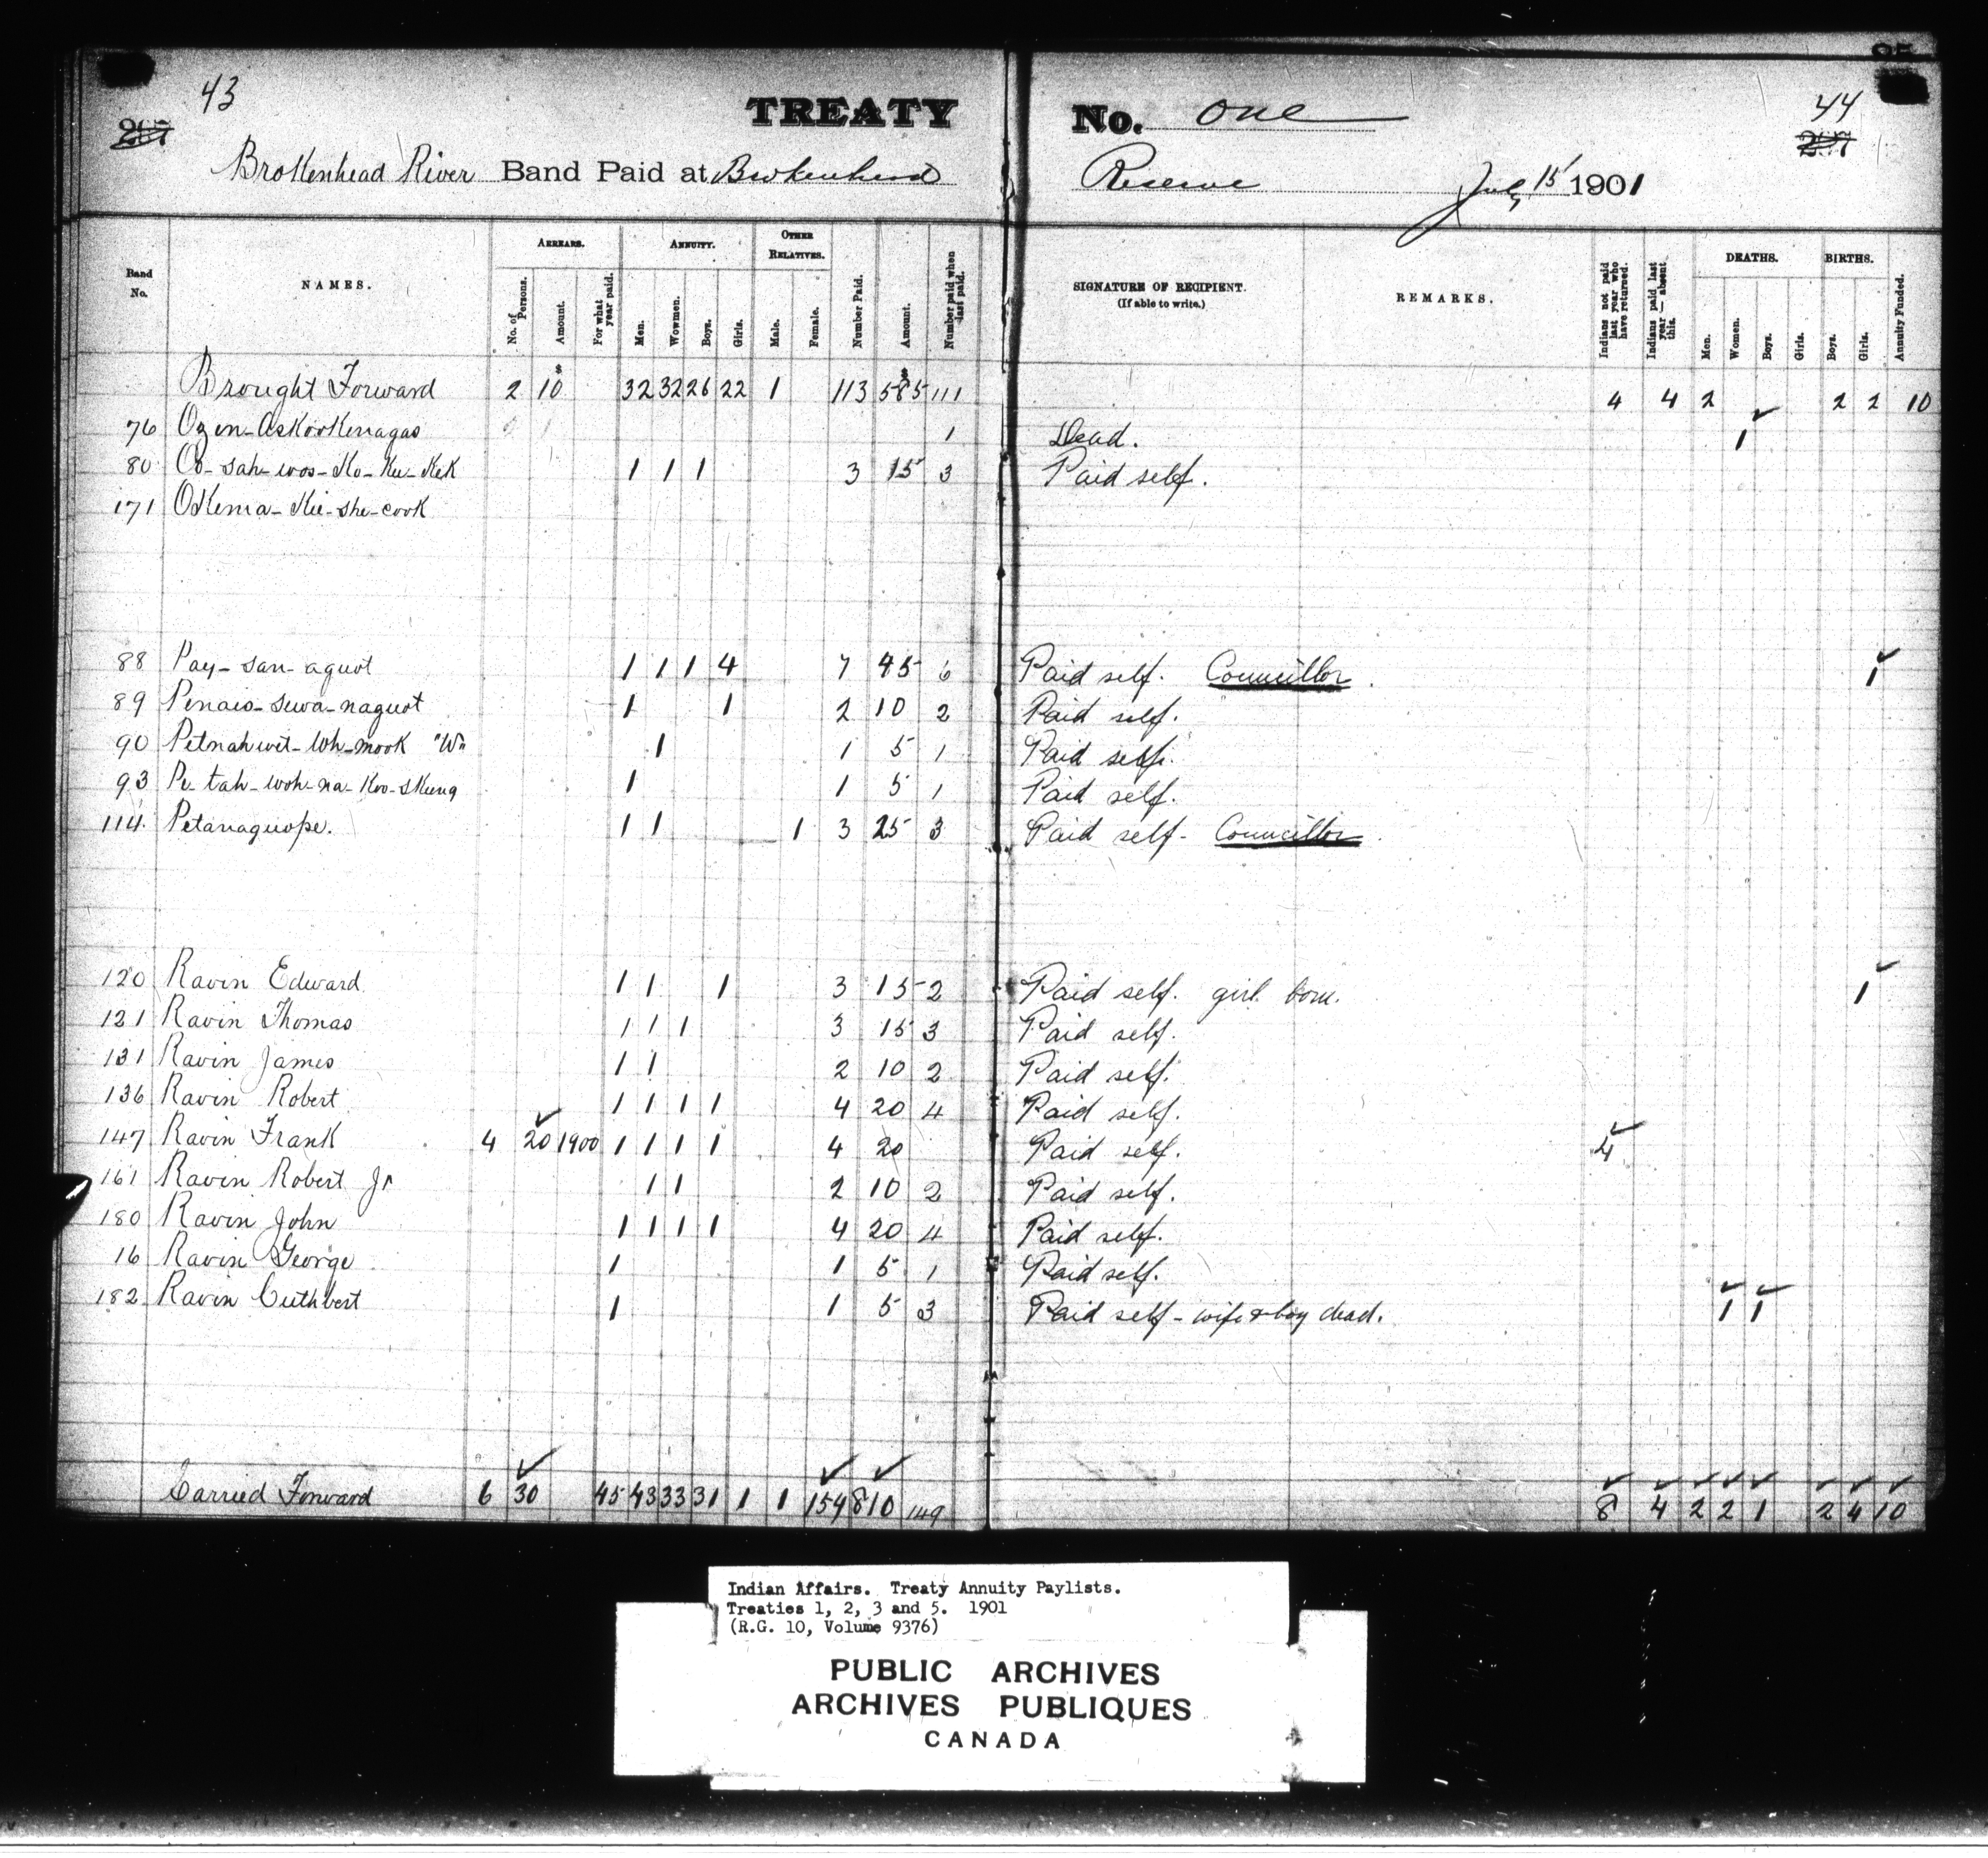 43
TREATY No. One
44
Brokenhead River Band Paid at Brokenhead Reserve July 15 1901
Band No.
NAMES.
ARREARS.
No. of Persons.
Amount.
For what year paid.
ANNUITY.
Men.
Wowmen.
Boys.
Girls.
OTHER RELATIVES.
Male.
Female.
Number Paid.
Amount.
Number paid when last paid.
SIGNATURE OF RECIPIENT.
(If able to write.)
REMARKS.
Indians not paid last year who have returned.
Indians paid last year — absent this.
DEATHS.
Men.
Women.
Boys.
Girls.
BIRTHS.
Boys.
Girls.
Annuity Funded.
Brought Forward 2 $10 32 32 26 22 1 113 $585 111 4 4 2 2 2 10
76 Ozen-Askookenagas 1 Dead. 1
80 Oo-sah-wos-Ko-Ku-KeK 1 1 1 3 15 3 Paid self.
171 OKema-Kii-she-cook
88 Pay-san-aquot 1 1 1 4 7 45 6 Paid self. Councillor. 1
89 Penais-sewa-naquot 1 1 2 10 2 Paid self.
90 Petnahwit-Wh-mook "W" 1 1 5 1 Paid self.
93 Pe-tah-woh-na-Koo-sKung 1 1 5 1 Paid self.
114. Petanaquope. 1 1 1 3 25 3 Paid self- Councillor.
120 Ravin Edward 1 1 1 3 15 2 Paid self. girl born. 1
121 Ravin Thomas 1 1 1 3 15 3 Paid self.
131 Ravin James 1 1 2 10 2 Paid self.
136 Ravin Robert 1 1 1 1 4 20 4 Paid self.
147 Ravin Frank 4 20 1900 1 1 1 1 4 20 Paid self. 4
161 Ravin Robert Jr 1 1 2 10 2 Paid self.
180 Ravin John 1 1 1 1 4 20 4 Paid self.
16 Ravin George 1 1 5 1 Paid self.
182 Ravin Cuthbert 1 1 5 3 Paid self - wife & boy dead. 1 1
Carried Forward 6 30 45 43 33 31 1 1 154 810 149 8 4 2 2 1 2 4 10
Indian Affairs. Treaty Annuity Paylists.
Treaties 1, 2, 3 and 5. 1901
(R.G. 10, Volume 9376)
PUBLIC ARCHIVES
ARCHIVES PUBLIQUES
CANADA